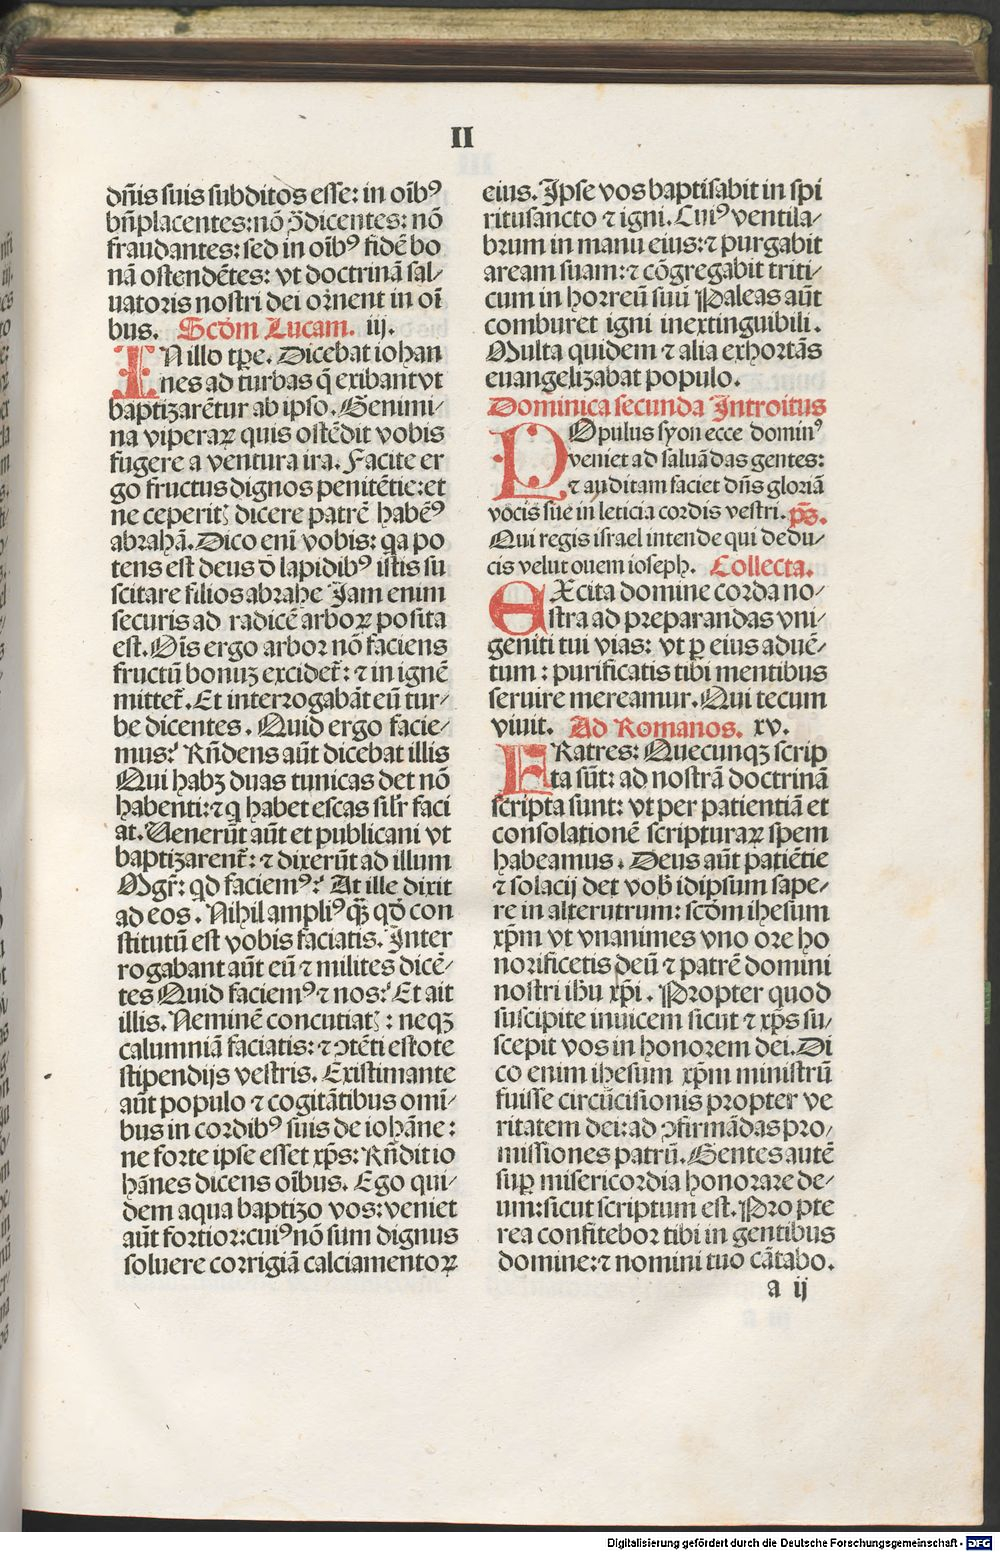 II
dñis suis subditos esse: in oībꝰ
bñplacentes: nō ↄ̄dicentes: nō
fraudantes: sed in oībꝰ fidē bo
nā ostendētes: vt doctrinā sal⸗
uatoris nostri dei ornent in oī
bus. Scđm Lucam. iij.
IN illo tꝑe. Dicebat iohan
nes ad turbas q̄ exibant vt
baptizarētur ab ipso. Genimi⸗
na viperaꝝ quis ostēdit vobis
fugere a ventura ira. Facite er
go fructus dignos penitētie: et
ne ceperitꝭ dicere patrē habēꝰ
abrahā. Dico enī vobis: qa po
tens est deus đ lapidibꝰ istis su
scitare filios abrahe Jam enim
securis ad radicē arboꝝ posita
est. Oīs ergo arbor nō faciens
fructū bonuꝫ excidet̄: ⁊ in ignē
mittet̄. Et interrogabāt eū tur⸗
be dicentes. Quid ergo facie⸗
mus? Rñdens aūt dicebat illis
Qui habꝫ duas tunicas det nō
habenti: ⁊ q habet escas silr̄ faci
at. Uenerūt aūt et publicani vt
baptizarent̄: ⁊ dixerūt ad illum
Mgr̄: qd faciemꝰ? At ille dixit
ad eos. Nihil ampliꝰ qꝫ̄ qđ con
stitutū est vobis faciatis. Inter
rogabant aūt eū ⁊ milites dicē⸗
tes Quid faciemꝰ ⁊ nos? Et ait
illis. Neminē concutiatꝭ: neqꝫ
calumniā faciatis: ⁊ ↄtēti estote
stipendijs vestris. Existimante
aūt populo ⁊ cogitātibus omī⸗
bus in cordibꝰ suis de iohāne:
ne forte ipse esset xp̄s: Rñdit io
hānes dicens oībus. Ego qui⸗
dem aqua baptizo vos: veniet
aūt fortior: cuiꝰ nō sum dignus
soluere corrigiā calciamentoꝝ
eius. Ipse vos baptisabit in spi
ritusancto ⁊ igni. Cuiꝰ ventila⸗
brum in manu eius: ⁊ purgabit
aream suam: ⁊ cōgregabit triti⸗
cum in horreū suū Paleas aūt
comburet igni inextinguibili.
Multa quidem ⁊ alia exhortās
euangelizabat populo.
Dominica secunda Introitus
POpulus syon ecce dominꝰ
veniet ad saluādas gentes:
⁊ auditam faciet dñs gloriā
vocis sue in leticia cordis vestri. ps̄.
Qui regis israel intende qui dedu⸗
cis velut ouem ioseph. Collecta.
EXcita domine corda no⸗
stra ad preparandas vni⸗
geniti tui vias: vt ꝑ eius aduē⸗
tum: purificatis tibi mentibus
seruire mereamur. Qui tecum
viuit. Ad Romanos. xv.
FRatres: Quecunqꝫ scrip
ta sūt: ad nostrā doctrinā
scripta sunt: vt per patientiā et
consolationē scripturaꝝ spem
habeamus. Deus aūt patiētie
⁊ solacij det vob̄ idipsum sape⸗
re in alterutrum: scđm ihesum
xp̄m vt vnanimes vno ore ho
norificetis deū ⁊ patrē domini
nostri ihu xp̄i. Propter quod
suscipite inuicem sicut ⁊ xp̄s su⸗
scepit vos in honorem dei. Di
co enim ihesum xp̄m ministrū
fuisse circūcisionis propter ve
ritatem dei: ad ↄfirmādas pro⸗
missiones patrū. Gentes autē
suꝑ misericordia honorare de⸗
um: sicut scriptum est. Propte
rea confitebor tibi in gentibus
domine: ⁊ nomini tuo cātabo.
a ij
Digitalisierung gefördert durch die Deutsche Forschungsgemeinschaft - DFG